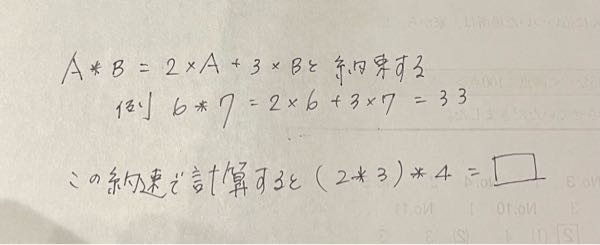 A * B = 2 × A + 3 × B と 約束する
例) 6 * 7 = 2 × 6 + 3 × 7 = 33
この 約速で 計算すると (2 * 3) * 4 = □